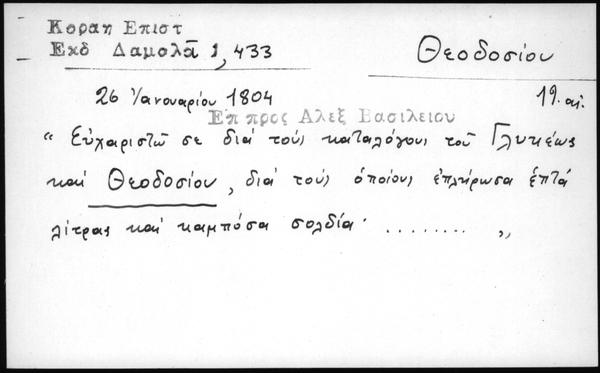 Κοραη Επιστ
Εκδ Δαμαλᾶ 1, 433
Θεοδοσίου
26 Ἰανουαρίου 1804
19. αἰ.
Επ προς Αλεξ Βασιλειου
“ Εὐχαριστῶ σε διά τούς καταλόγους τοῦ Γλυκέως
καί Θεοδοσίου, διά τούς ὁποίους ἐπλήρωσα ἑπτά
λίτρας καί καμπόσα σολδία· ........ „